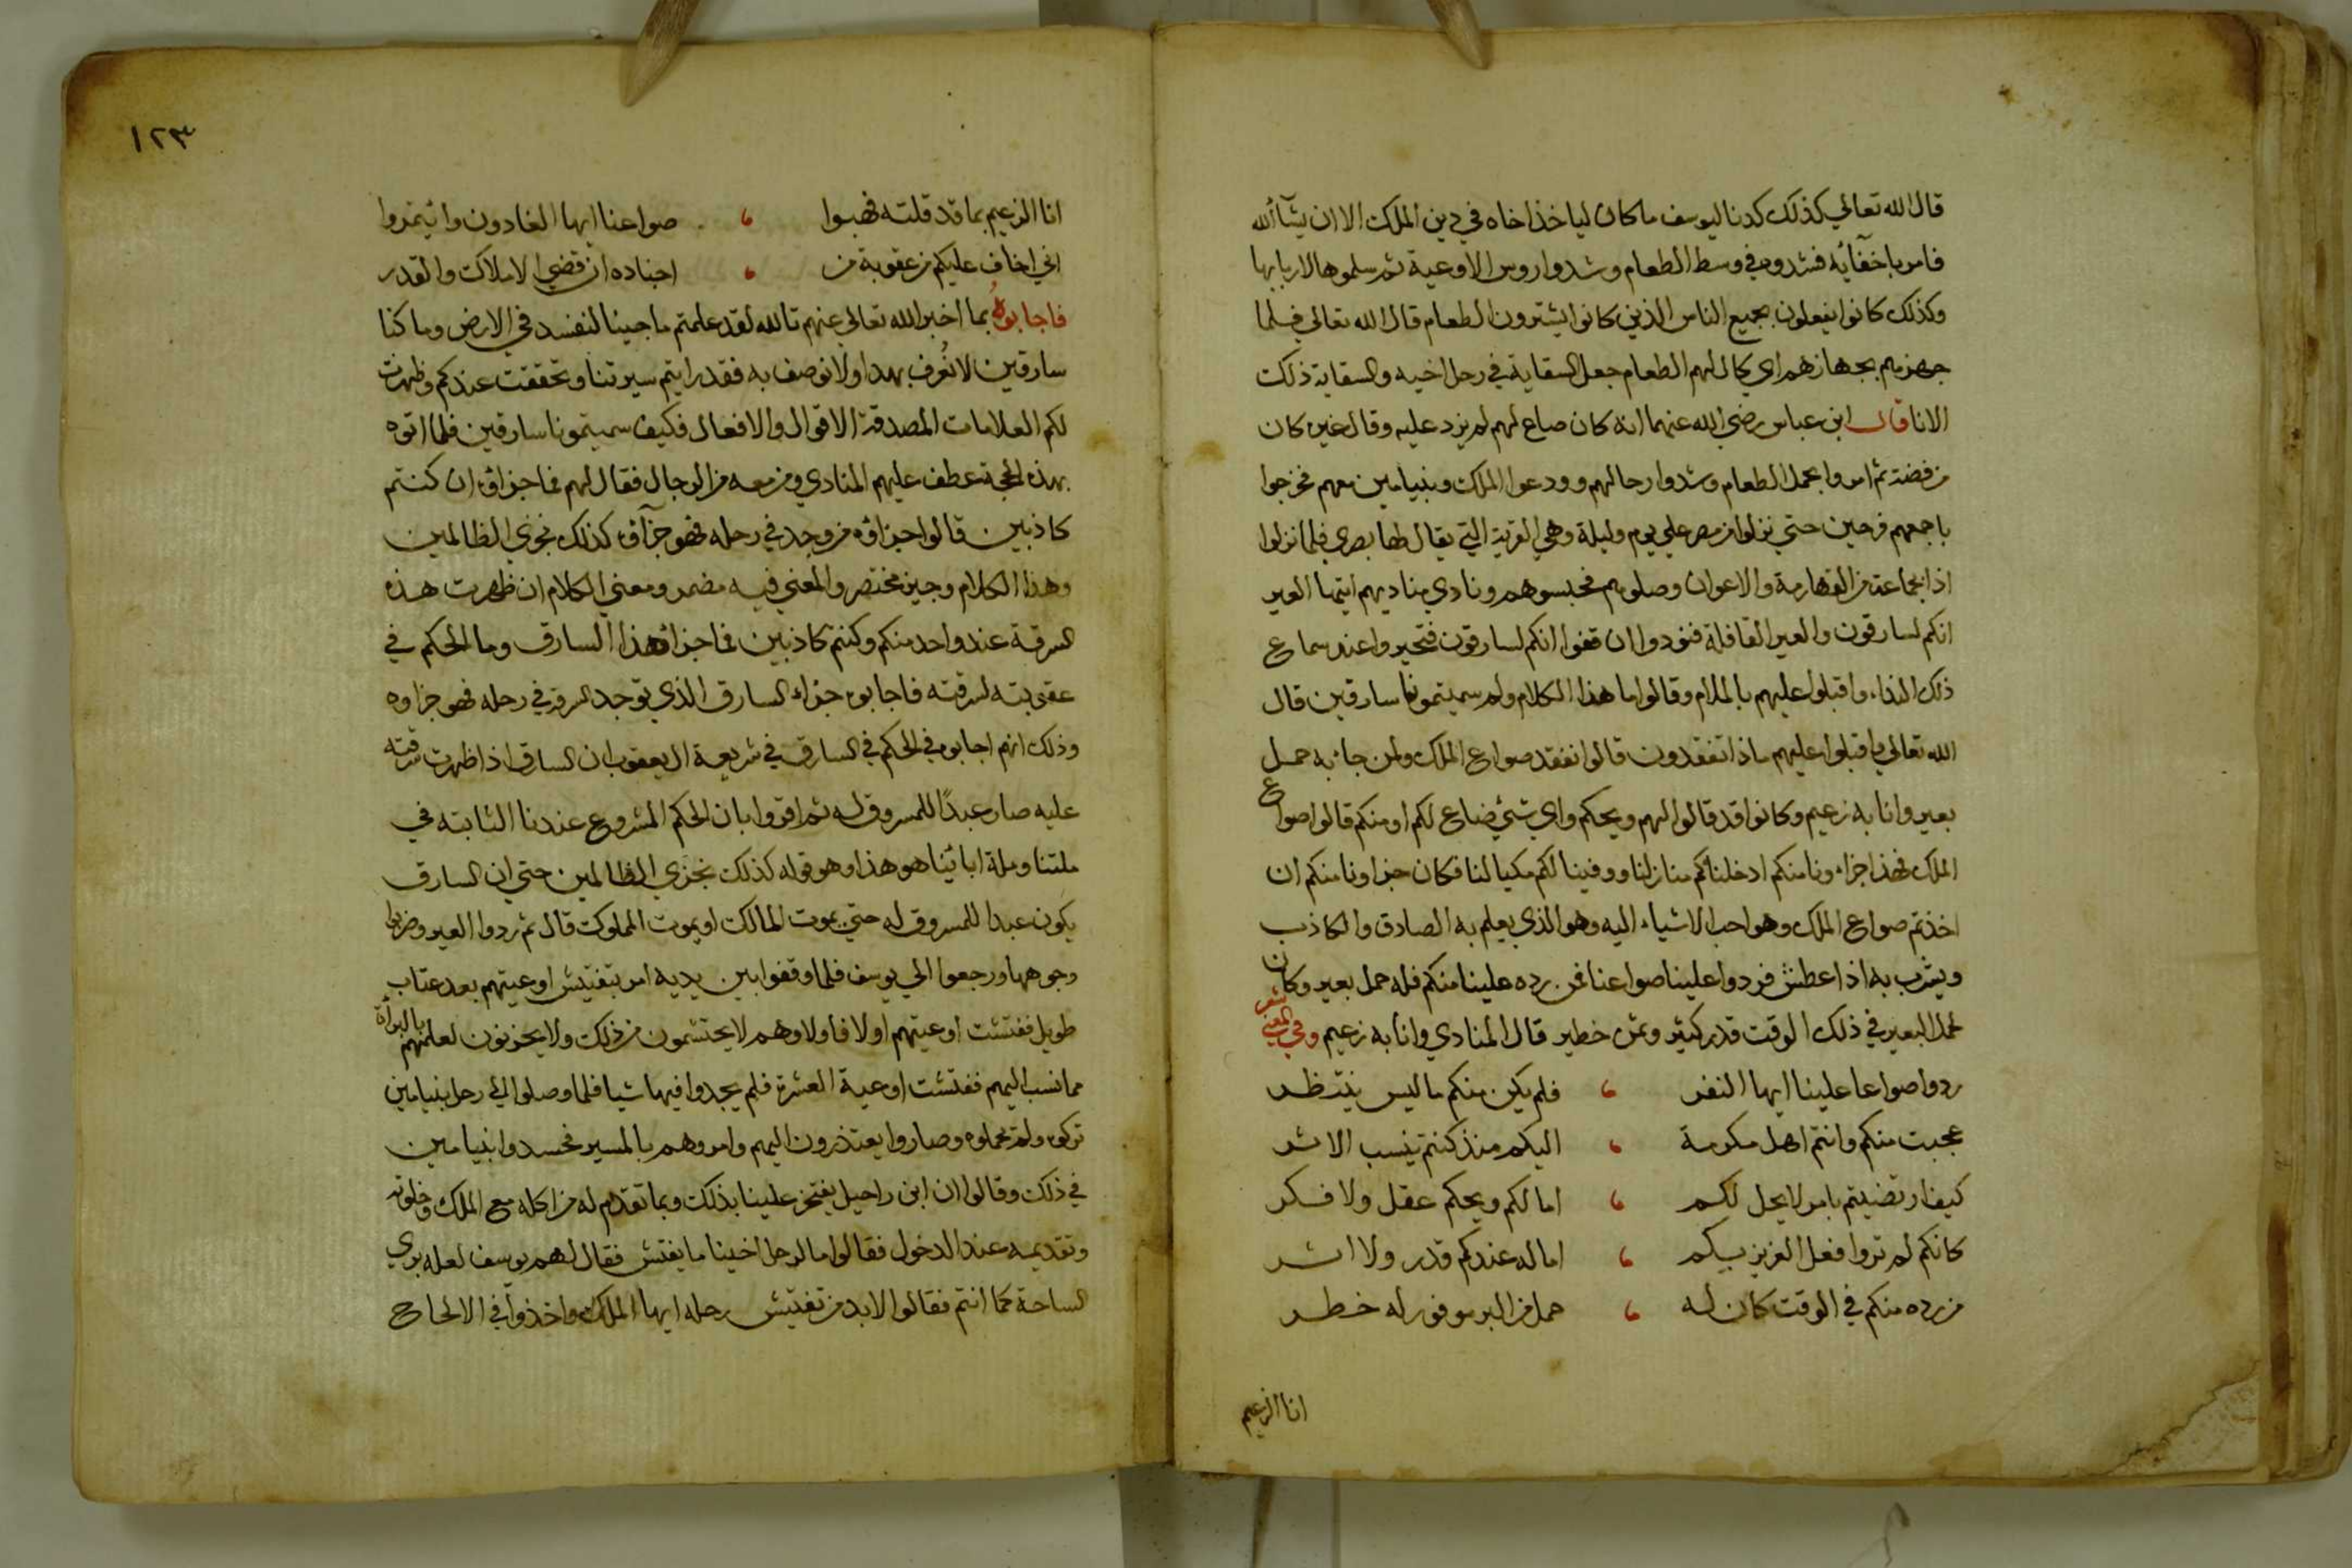 قال الله تعالي كذلك كدنا ليوسف ماكان لياخذ اخاه في دين الملك الا ان يشآ الله
فامر باخفآئه فشدوه في وسط الطعام وشدوا روس الاوعية ثم سلموها لاربابها
وكذلك كانوا يفعلون بجميع الناس الذين كانوا يشترون الطعام قال الله تعالي فلما
جهزهم بجهازهم اي كال لهم الطعام جعل السقاية في رحل اخيه والسقاية ذلك
الانا قال ابن عباس رضي الله عنهما انه كان صاع لهم لم يزد عليه وقال غيره كان
من فضة ثم امروا بحمل الطعام وشدوا رحالهم وودعوا الملك وبنيامين معهم فخرجوا
باجمعهم فرحين حتي نزلوا من مصر علي يوم وليلة وهي القرية التي يقال لها بصري فلما نزلوا
اذا بجماعة من القهارمة والاعوان وصلوهم فحبسوهم ونادي مناديهم ايتها العير
انكم لسارقون والعير القافلة فنودوا ان قفوا انكم لسارقون فتحيروا عند سماع
ذلك النداء واقبلوا عليهم بالملام وقالوا ما هذا الكلام ولم سميتمونا سارقين قال
الله تعالي واقبلوا عليهم ماذا تفقدون قالوا نفقد صواع الملك ولمن جاء به حمل
بعير وانا به زعيم وكانوا قد قالوا لهم ويحكم واي شئ ضاع لكم او منكم قالوا صواع
الملك فهذا جزاءونا منكم ادخلناكم منازلنا ووفينا لكم مكيالنا فكان جزاونا منكم ان
اخذتم صواع الملك وهو احب الاشياء اليه وهو الذي يعلم به الصادق والكاذب
ويشرب به اذا عطش فردوا علينا صواعنا فمن رده علينا منكم فله حمل بعير وكان
لحمل البعير في ذلك الوقت قدر كثير وثمن خطير قال المنادي وانا به زعيم وفي المعني شعر
ردوا صواعا علينا ايها النفر ، فلم يكن منكم ما ليس ينتظر
عجبت منكم وانتم اهل مكرمة ، اليكم منذ كنتم ينسب الاشر
كيف ارتضيتم بامر لا يحل لكم ، اما لكم ويحكم عقل ولا فكر
كانكم لم تروا فعل العزيز بكم ، اما له عندكم قدر ولا اثر
من رده منكم في الوقت كان له ، حمل من البر موفور له خطر
انا الزعيم
١٢٣
انا الزعيم بما قد قلته فهبوا ، صواعنا ايها الغادون وا ثيتمروا
اني اخاف عليكم من عقوبة من ، اجناده ان قضي الاملاك والقدر
فاجابوه بما اخبر الله تعالي عنهم تالله لقد علمتم ما جينا لنفسد في الارض وما كنا
سارقين لا نعرف بهدا ولا نوصف به فقد رايتم سيرتنا وتحققت عندكم وظهرت
لكم العلامات المصدقة الاقوال والافعال فكيف سميتمونا سارقين فلما اتوه
بهذه الحجة عطف عليهم المنادي ومن معه من الرجال فقال لهم فما جزاؤه ان كنتم
كاذبين قالوا جزاؤه من وجد في رحله فهو جزآؤه كذلك نجزي الظالمين
وهذا الكلام وجيز مختصر والمعني فيه مضمر ومعني الكلام ان ظهرت هذه
السرقة عند واحد منكم وكنتم كاذبين فما جزاء هذا السارق وما الحكم في
عقوبته لسرقته فاجابوه جزاء السارق الذي توجد السرقة في رحله فهو جزاوه
وذلك انهم اجابوه في الحكم في السارق في شريعة ال يعقوب ان السارق اذا ظهرت سرقته
عليه صار عبدًا للمسروق له ثم اقروا بان الحكم المشروع عندنا الثابته في
ملتنا وملة ابائينا هو هذا وهو قوله كذلك نجزي الظالمين حتي ان السارق
يكون عبدا للمسروق له حتي يموت المالك او يموت المملوك قال ثم ردوا العير وضربوا
وجوهها ورجعوا الي يوسف فلما وقفوا بين يديه امر بتفتيش اوعيتهم بعد عتاب
طويل ففتشت اوعيتهم اولا فاولا وهم لا يحتشمون من ذلك ولا يحزنون لعلمهم بالبرأة
مما نسب اليهم ففتشت اوعية العشرة فلم يجدوا فيها شيا فلما وصلوا الي رحل بنيامين
تركوه ولم يحملوه وصاروا يعتذرون اليهم وامروهم بالمسير فحسدوا بنيامين
في ذلك وقالوا ان ابن راحيل يفتخر علينا بذلك وبما تقدم له من اكله مع الملك وخلوته
وتقديمه عند الدخول فقالوا ما لرحل اخينا ما يفتش فقال لهم يوسف لعله بري
الساحة كما انتم فقالوا لا بد من تفتيش رحله ايها الملك واخذوا في الالحاح